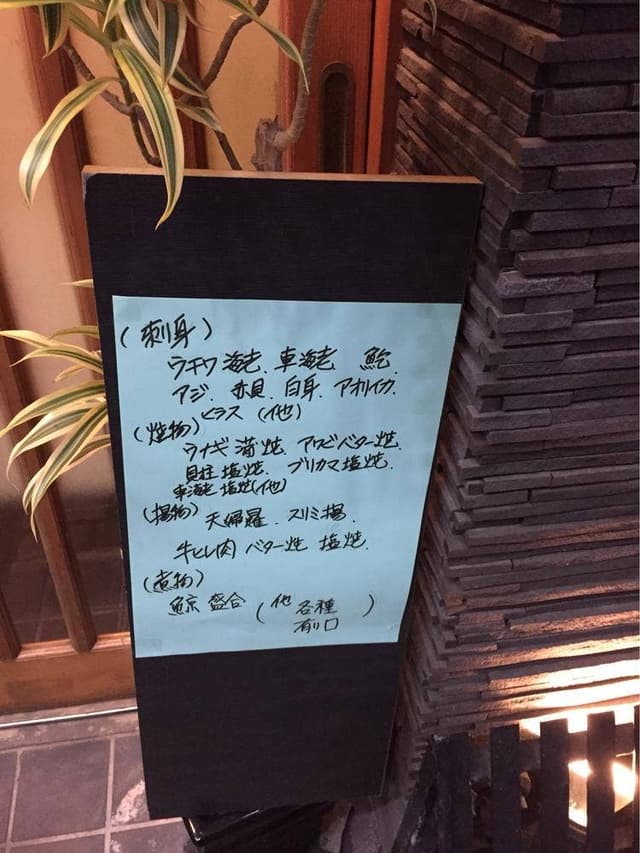 (刺身)
ウチワ海老、車海老 鮑
アジ、赤貝、白身、アオリイカ、
ヒラス (他)
(焼物)
ウナギ蒲焼、アワビバター焼、
貝柱塩焼、ブリカマ塩焼、
車海老塩焼(他)
(揚物) 天婦羅、スリミ揚、
牛ヒレ肉 バター焼 塩焼、
(煮物)
鯨盛合 (他 各種
有り)